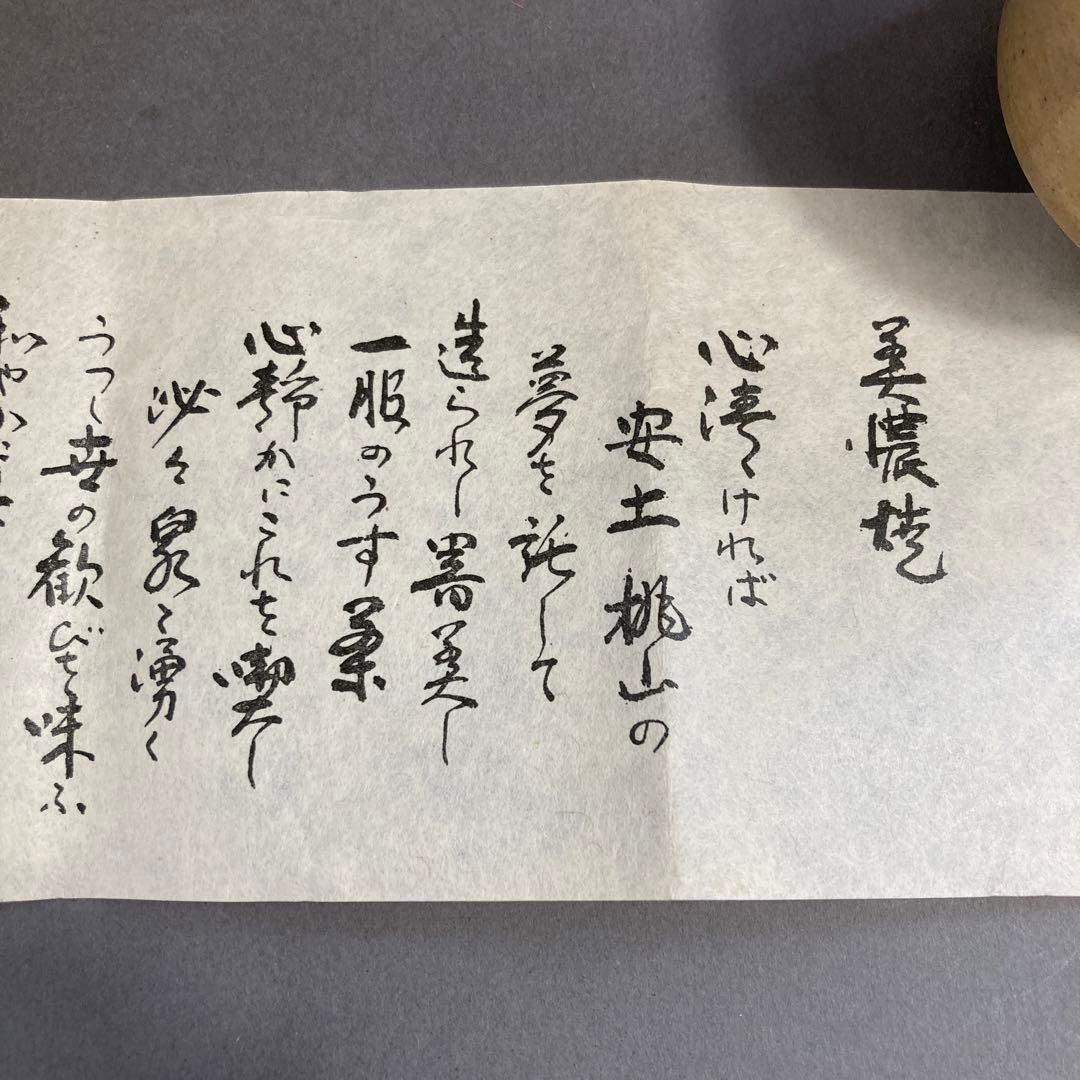 美濃焼
心清ければ
安土桃山の
夢を託して
造られし器美し
一服のうす茶
心静かにこれを喫し
泌々泉と湧く
うつゝ世の歓びを味ふ
和やか